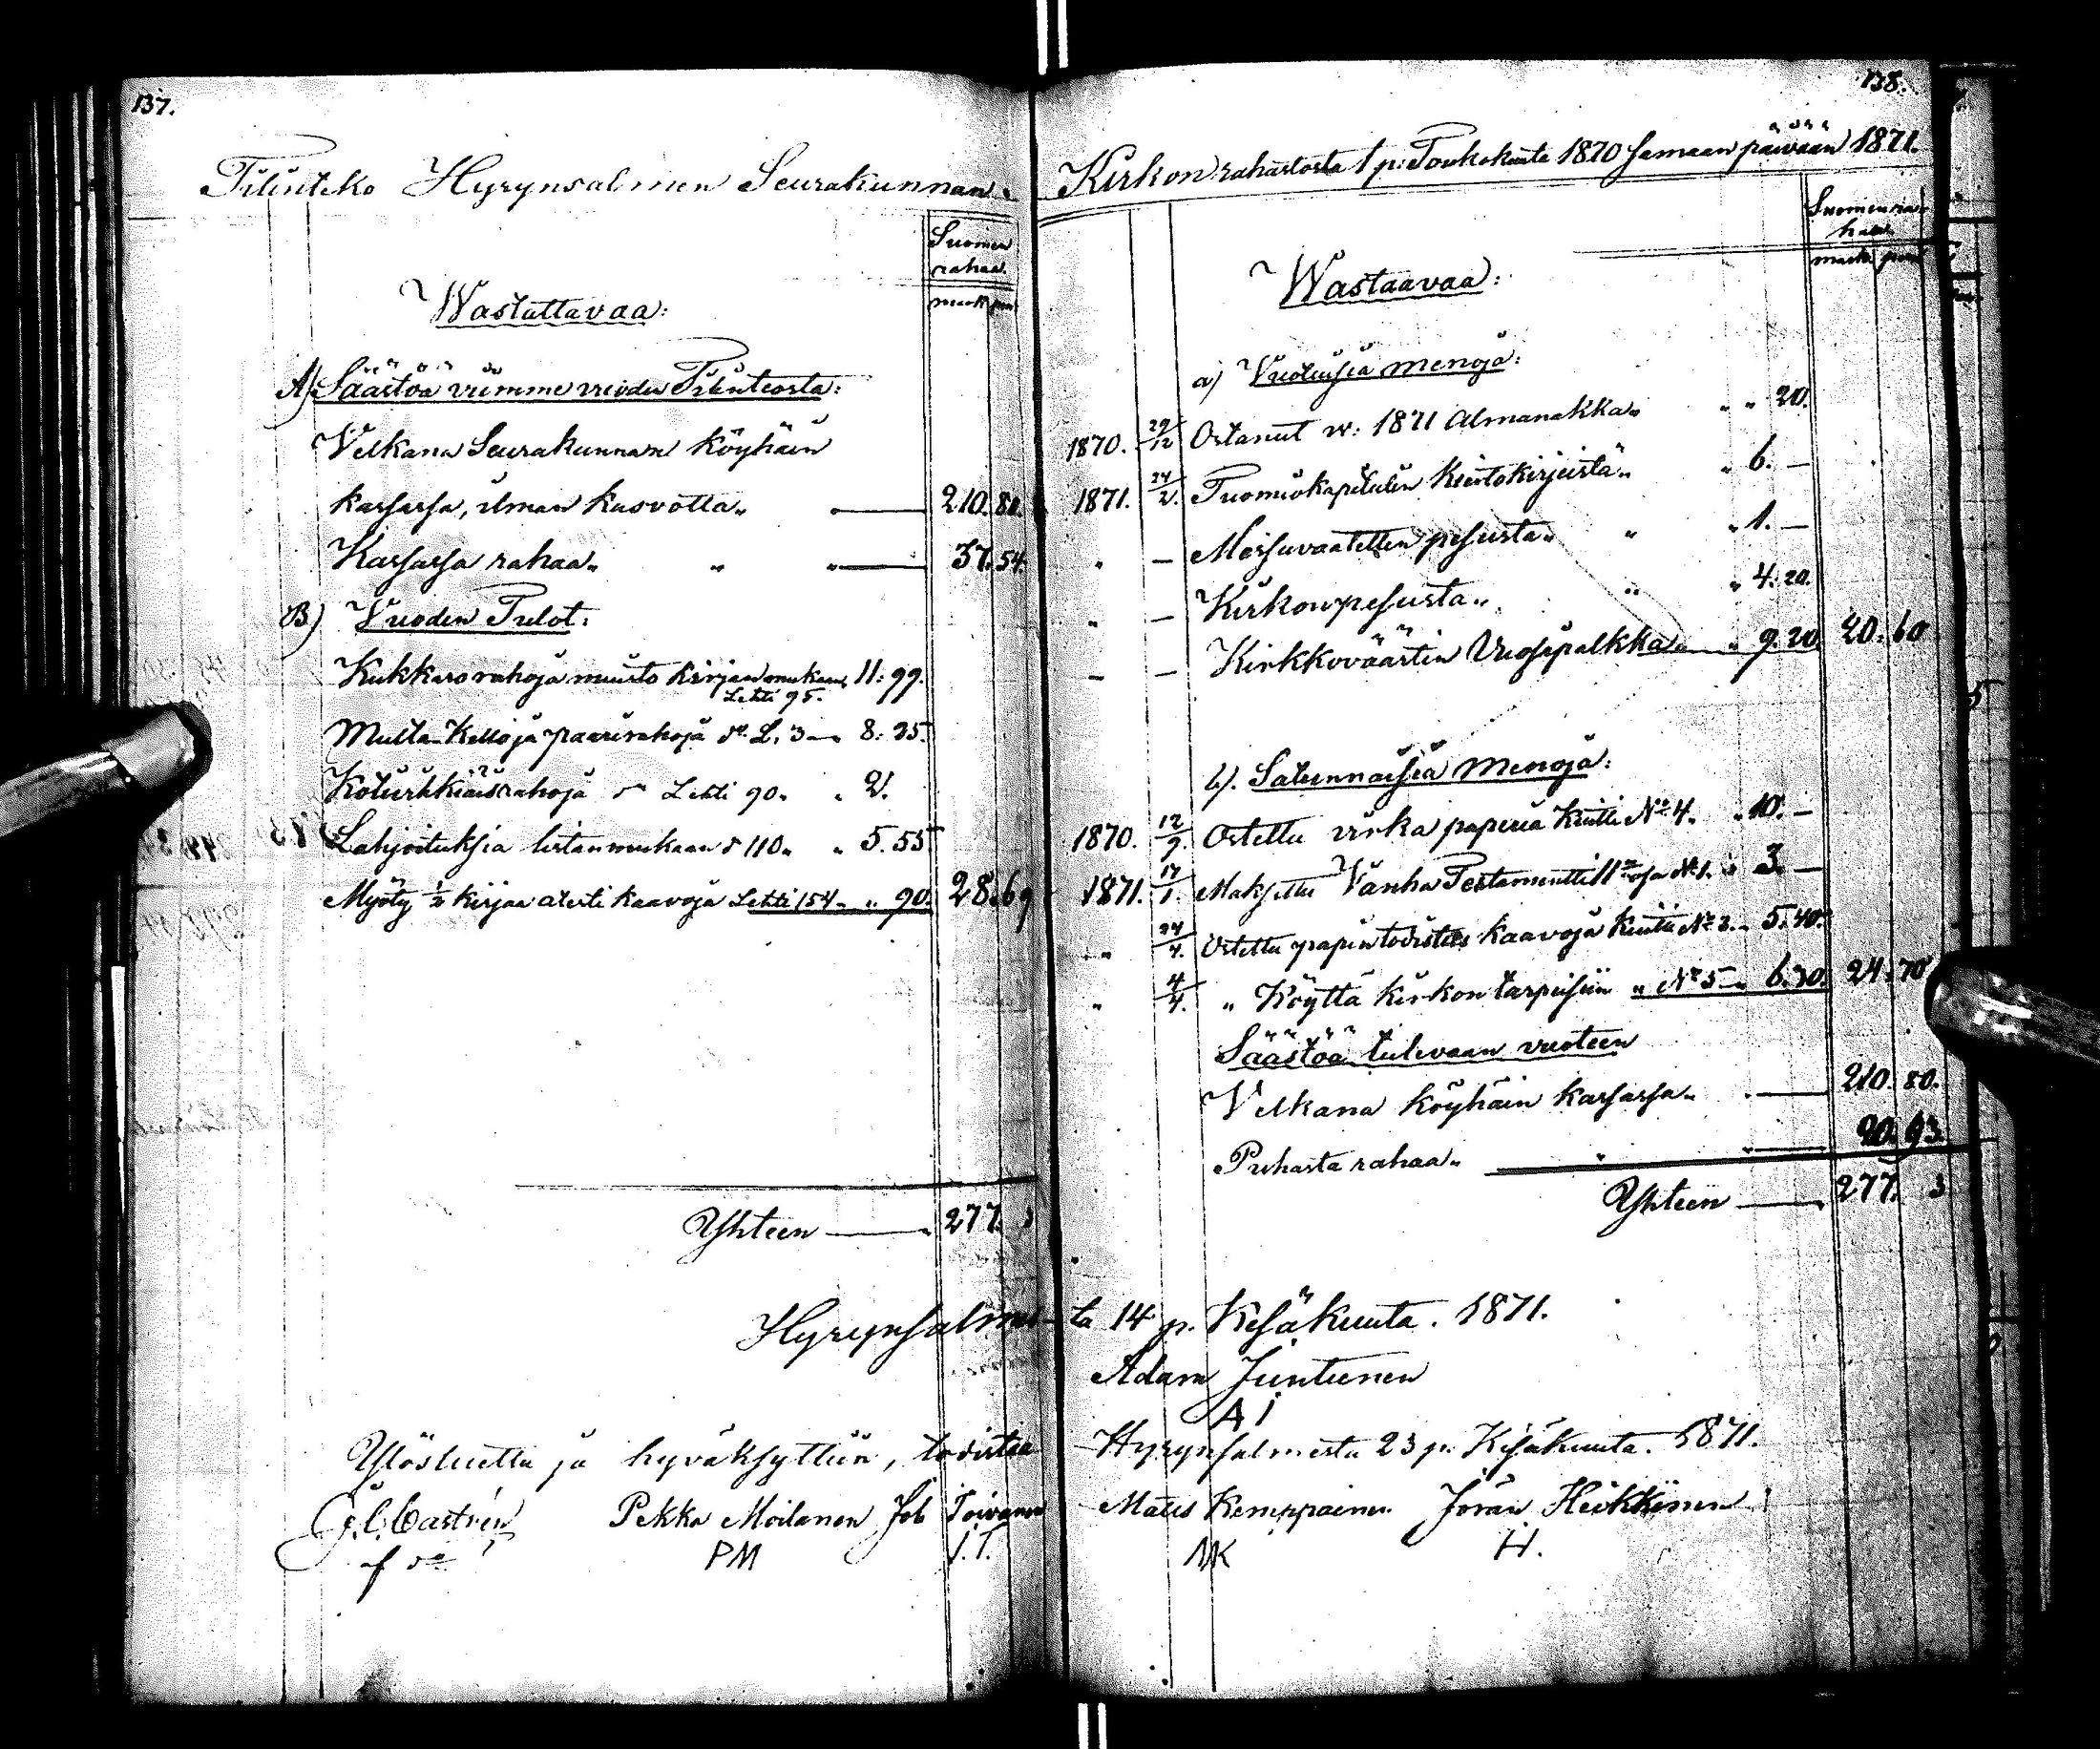 137.
Tilinteko Hyrynsalmen Seurakunnan
Suomen
rahaa.
mark. pen.
Wastattavaa:
A) Säästöä viimme vuoden Tilinteosta:
Velkana Seurakunnan Köyhäin
kassassa, ilman kasvotta „ 210. 80.
Kassassa rahaa „ „ „ 37. 54.
B) Vuoden Tulot:
Kukkaro rahoja muisto kirjan mukaan 11: 99.
Lehti 95.
Multa- Kello ja paarirahoja do L. 3 — 8: 25.
Kotiurkkiäisrahoja do Lehti 90 „ „ 2.
Lahjoituksia listan mukaan d 110 „ „ 5. 55
Myöty ½ kirjaa atesti kaavoja Lehti 154 „ „ 90. 28. 69
Yhteen 277. 3
Hyrynsalme-
Ylösluettu ja hyväksyttiin, todistaa
Castrén Pekka Moilanen Job Toivanen
PM J.T.
138.
Kirkon rahastosta 1 p: Toukokuuta 1870 samaan päivään 1871.
Suomen ra-
haa.
mark. pen.
Wastaavaa:
a) Vuotuisia menoja:
1870. 29/12 Ostanut v: 1871 Almanakka „ „ „ 20.
1871. 24/2. Tuomiokapitulin Kiertokirjeistä „ „ 6. —
„ — Messuvaatetten pesusta „ „ „ 1. —
„ — Kirkonpesusta „ „ „ 4. 20.
„ — Kirkkoväärtin Vuosipalkka „ „ 9. 20. 20. 60
b). Satunnaisia Menoja:
1870. 12/9. Ostettu virka paperia Kuitti No 4. „ 10. —
1871. 17/1. Maksettu Vanha Testamentti II osa No 1. „ 3. —
„ 24/4. Ostettu papintodistus kaavoja Kuitti No 3. „ 5. 40.
„ 4/4. „ Köyttä kirkon tarpeisiin „ No 5 „ 6. 30. 24. 70
Säästöä tulevaan vuoteen
Velkana Köyhäin kassassa „ 210. 80.
Puhasta rahaa „ „ „ 20. 93.
Yhteen 277. 3
ta 14 p. Kesäkuuta. 1871.
Adam Juntunen
AJ
Hyrynsalmesta 23 p. Kesäkuuta. 1871.
Matts Kemppainen Jöran Heikkinen
MK H.